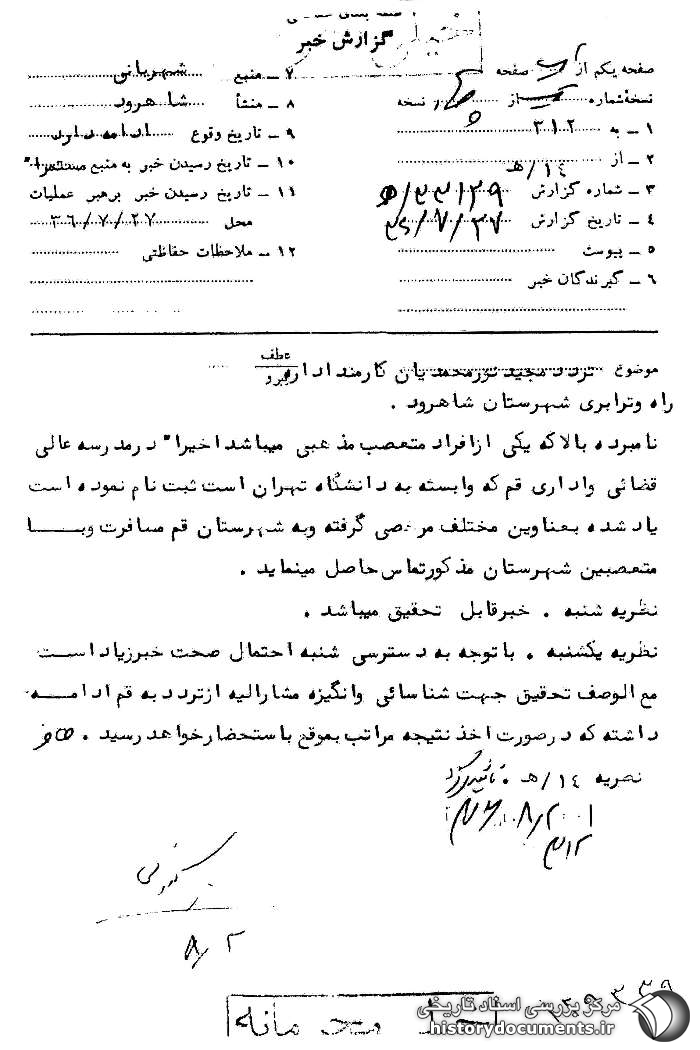 گزارش خبر
خیلی
صفحه یکم از یک صفحه
نسخه شماره از نسخه
۱ ـ به ۳۱۲
۲ ـ از ۱۴/هـ
۳ ـ شماره گزارش
۴ ـ تاریخ گزارش ۳۶/۷/۲۷
۵ ـ پیوست
۶ ـ گیرندگان خبر
۷ ـ منبع شهربانی
۸ ـ منشأ شاهرود
۹ ـ تاریخ وقوع ادامه دارد
۱۰ ـ تاریخ رسیدن خبر به منبع مستمرا"
۱۱ ـ تاریخ رسیدن خبر برهبر عملیات
محل ۳۶/۷/۲۷
۱۲ ـ ملاحظات حفاظتی
عطف
پیرو
موضوع تردد مجید نورمحمدیان کارمند اداره
راه وترابری شهرستان شاهرود .
نامبرده بالاکه یکی ازافراد متعصب مذهبی میباشد اخیرا" درمدرسه عالی
قضائی واداری قم که وابسته به دانشگاه تهران است ثبت نام نموده است
یاد شده بعناوین مختلف مرخصی گرفته وبه شهرستان قم مسافرت وبا
متعصبین شهرستان مذکورتماس حاصل مینماید .
نظریه شنبه . خبرقابل تحقیق میباشد .
نظریه یکشنبه . باتوجه به دسترسی شنبه احتمال صحت خبرزیاد است
مع الوصف تحقیق جهت شناسائی وانگیزه مشارالیه ازتردد به قم ادامه
داشته که درصورت اخذ نتیجه مراتب بموقع باستحضارخواهد رسید .
نظریه ۱۴/هـ .
۳۱۲
۸/۲
خیلی محرمانه
مرکز بررسی اسناد تاریخی
historydocuments.ir